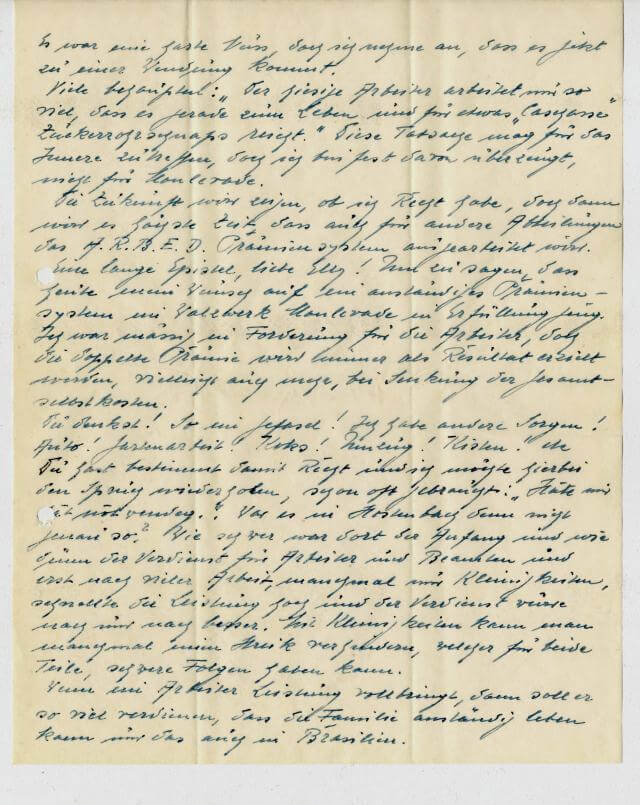 Es war eine harte Nuss, doch ich nehme an, dass es jetzt
zu einer Wendung kommt.
Viele behaupten: „Der hiesige Arbeiter arbeitet nur so
viel, dass es gerade zum Leben und für etwas „Caschasse"
Zuckerrohrschnaps reicht." Diese Tatsache mag für das
Innere zutreffen, doch ich bin fest davon überzeugt,
nicht für Monlevade.
Die Zukunft wird zeigen, ob ich Recht habe, doch dann
wird es höchste Zeit, dass auch für andere Abteilungen
das A.R.B.E.D. Prämiensystem ausgearbeitet wird.
Eine lange Epistel, liebe Elly! Um zu sagen, dass
heute mein Wunsch auf ein anständiges Prämien-
system im Walzwerk Monlevade in Erfüllung ging.
Ich war mässig in Forderung für die Arbeiter, doch
die doppelte Prämie wird immer als Resultat erzielt
werden, vielleicht auch mehr, bei Senkung der Gesamt-
selbstkosten.
Du denkst! So ein Gefasel! Ich habe andere Sorgen!
Auto! Gartenarbeit! Koks! Umzug! Kisten! etc
Du hast bestimmt damit Recht und ich möchte hierbei
den Spruch wiederholen, schon oft gebraucht: „Hätte mir
nicht notwendig." War es in Hostenbach denn nicht
genau so? Wie schwer war dort der Anfang und wie
dünn der Verdienst für Arbeiter und Beamten und
erst nach vieler Arbeit, manchmal nur Kleinigkeiten,
schnellte die Leistung hoch und der Verdienst wurde
nach und nach besser. Mit Kleinigkeiten kann man
manchmal einen Streik verhindern, welcher für beide
Teile, schwere Folgen haben kann.
Wenn ein Arbeiter Leistung vollbringt, dann soll er
so viel verdienen, dass die Familie anständig leben
kann und das auch in Brasilien.